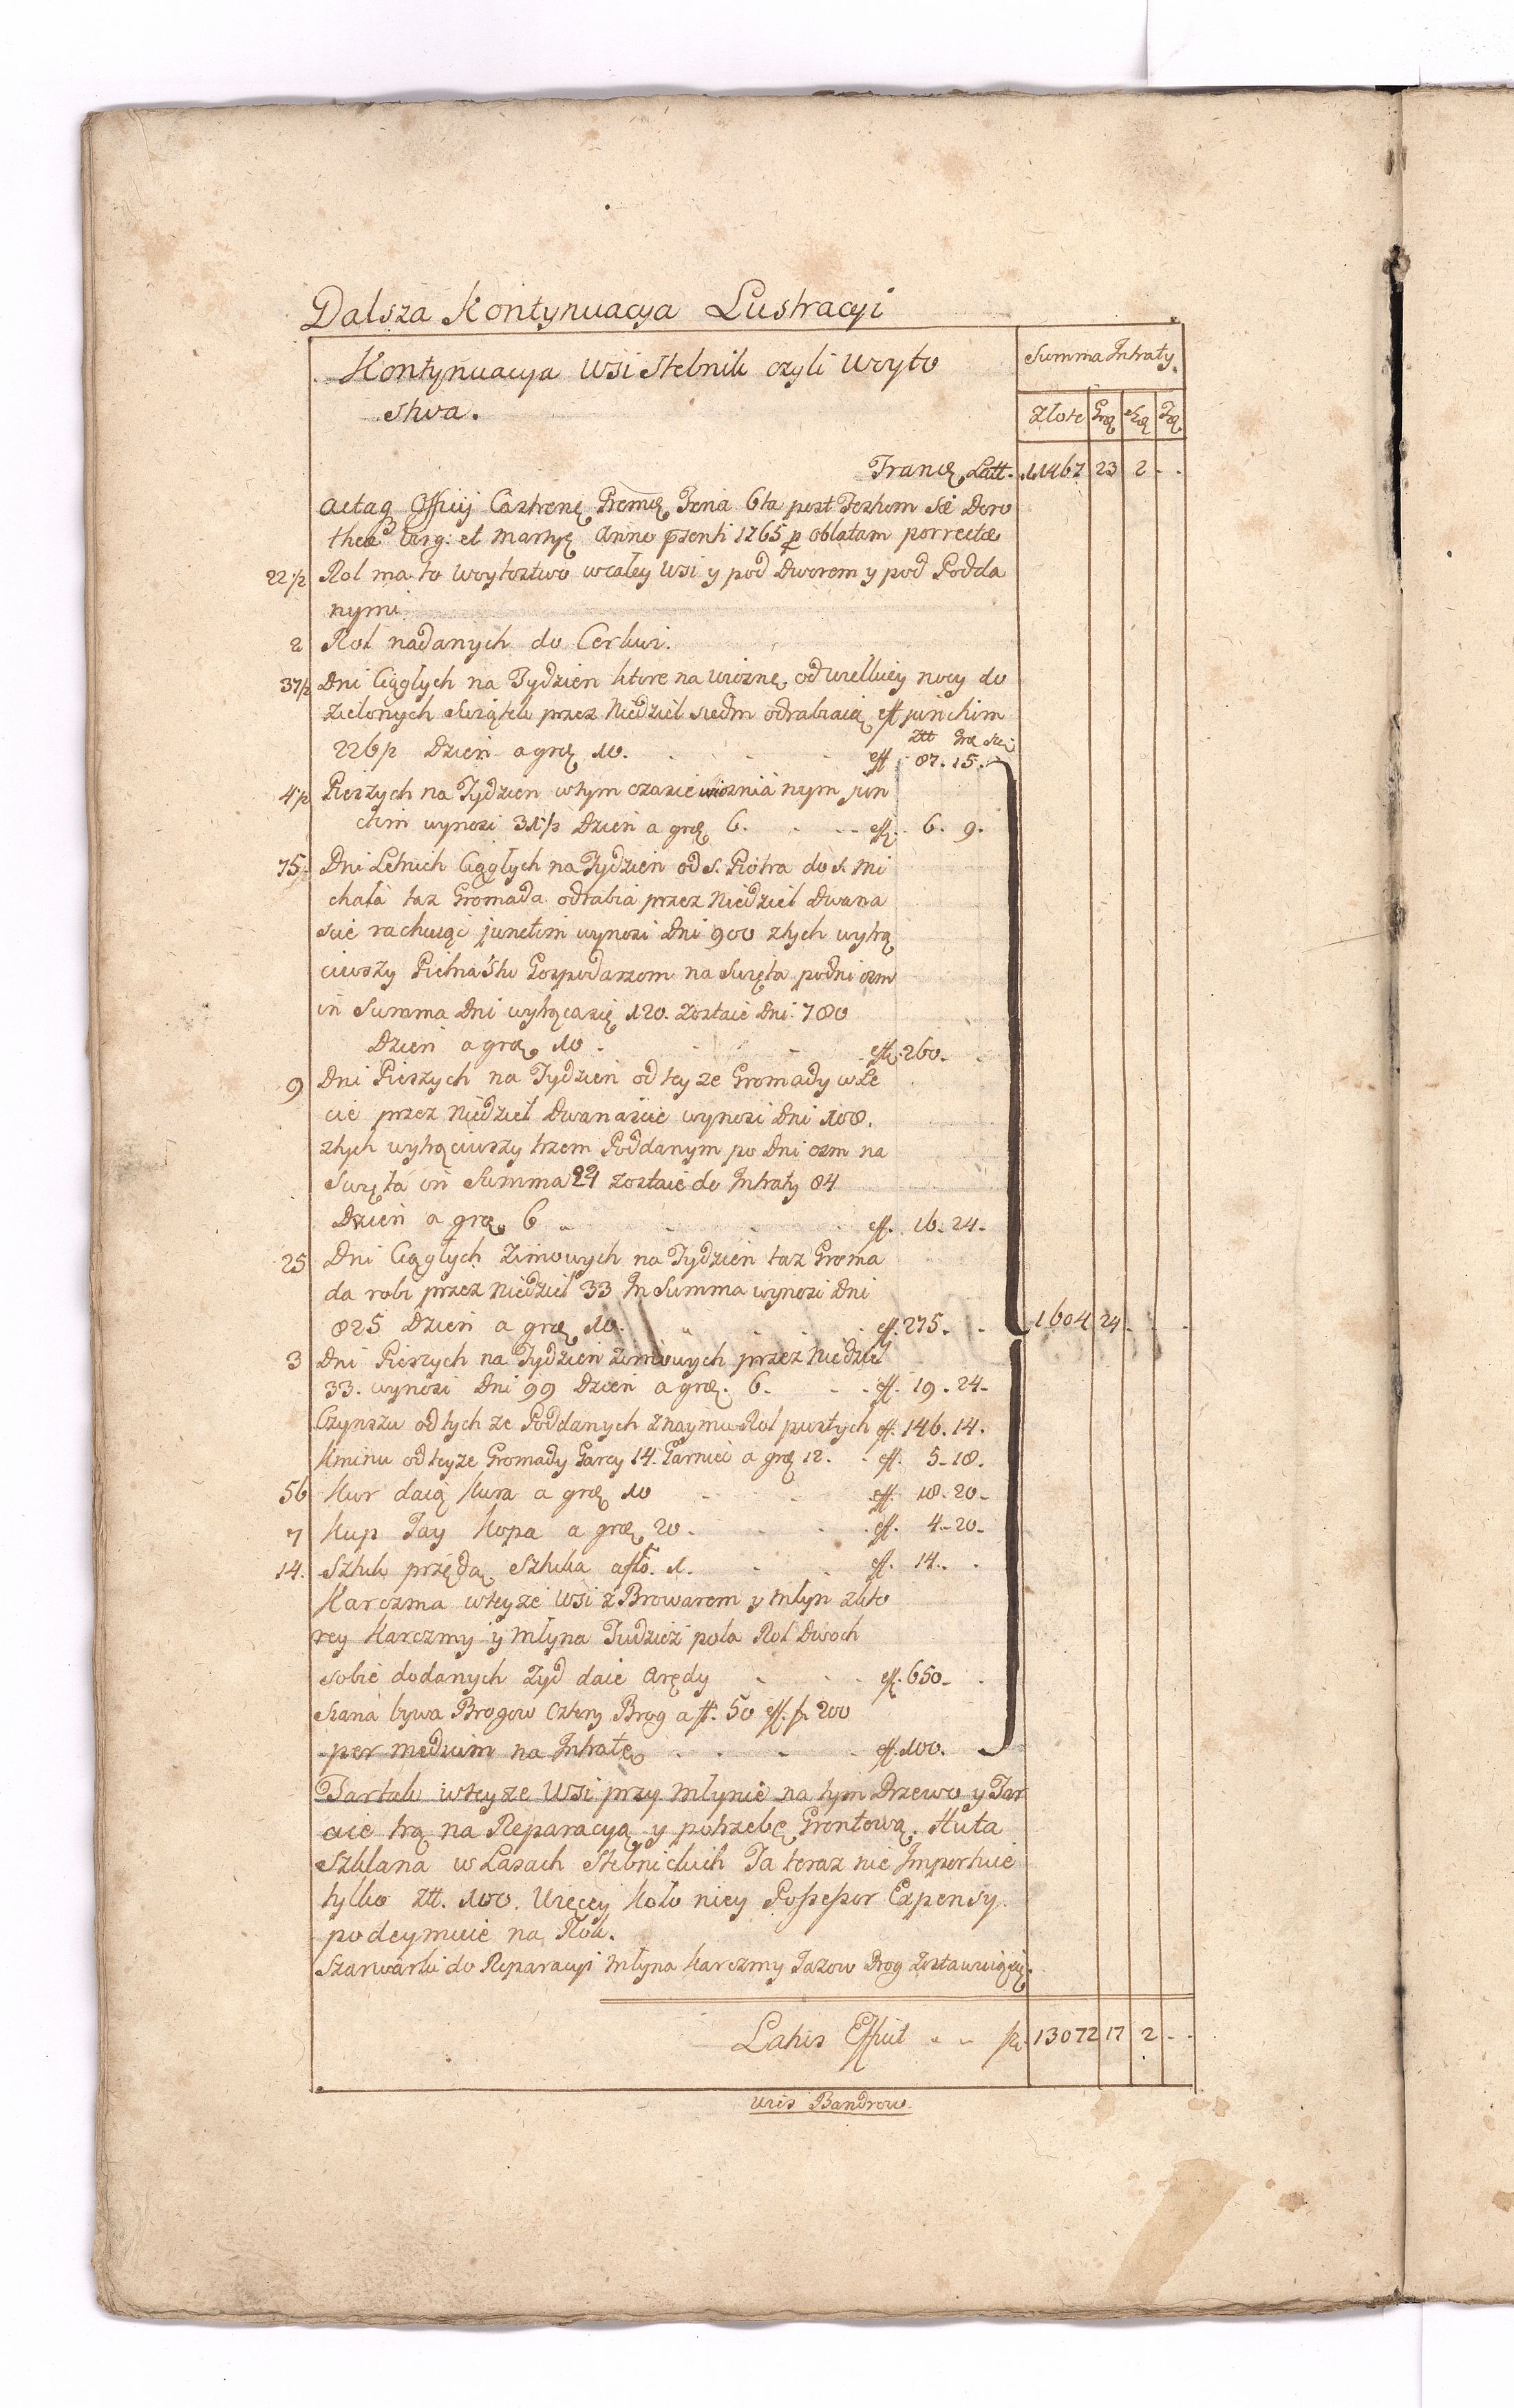 Dalsza Kontynuacya Lustracyi
Kontynuacya Wsi Stebnik czyli Woyto
stwa.
Summa Intraty
Złote Grą Szą Trą
Latt. 11467 23 2 - -
Actaq Officij Castrenę Premą Feria 6ta post Festum Sae Doro
theae Virg: et Martyę Anno 1765 p oblatam porrectae
22 1/2 Rol ma to Woytostwo wcałey Wsi y pod Dworem y pod Podda
nymi
2 Rol nadanych do Cerkwi.
37 1/2 Dni Ciągłych na Tydzien ktore na wiosnę od wielkiey nocy do
Zielonych Swiątek przez Niedziel siedm odrabiaią eff junctim
226 1/2 Dzień a grą 10. Ztt Grą Szą
eff 87. 15. -
4 1/2 Pieszych na Tydzien wtym czasie wiosnianym jun
ctim wynosi 31 1/2 Dzien a grą 6. - - - eff. 6. 9.
75 Dni Letnich Ciągłych na Tydzień od S. Piotra do S. Mi
chała taz Gromada odrabia przez Niedziel Dwana
scie rachuiąc junctim wynosi Dni 900 ztych wytrą
ciwszy Pietnastu Gospodarzom na Swięta po dni osm
in Summa Dni wytrąca się 120. Zostaie Dni 780
Dzień a grą 10. - - - eff. 260. -
9 Dni Pieszych na Tydzień od tey ze Gromady w Le
cie przez Niedziel Dwanascie wynosi Dni 108.
ztych wytrąciwszy trzem Poddanym po Dni osm na
Swięta in Summa 24 zostaie do Intraty 84
Dzień a grą 6 - - - eff. 16. 24.
25 Dni Ciągłych Zimowych na Tydzień taz Groma
da robi przez Niedziel 33 In Summa wynosi Dni
825 Dzień a grą 10. - - - eff. 275. - - 1604 24 - -
3 Dni Pieszych na Tydzień Zimowych przez Niedziel
33. wynosi Dni 99 Dzień a grą. 6. - - eff. 19. 24.
Czynszu od tych ze Poddanych z naymu Rol pustych eff. 146. 14.
Kminu od teyze Gromady Garcy 14. Garniec a grą 12. - eff. 5. 18.
56 Kur daią Kura a grą 10 - - - eff. 18. 20.
7 Kup Jay Kopa a grą 20. - - - eff. 4. 20.
14. Sztuk przędą Sztuka a fło. 1. - - eff. 14. -
Karczma wteyze Wsi z Browarem y Młyn z kto
rey Karczmy y Młyna Tudziez pola Rol Dwoch
sobie dodanych Zyd daie Arędy - - eff. 650. -
Siana bywa Brogow cztery Brog a ff. 50 eff. f. 200
per medium na Intratę - - - eff. 100. -
Tartak wteyze Wsi przy Młynie na tym Drzewo y Tar
cie trą na Reparacyą y potrzebę Grontową. Huta
Szklana w Lasach Stebnickich Ta teraz nie Importuie
tylko ztt. 100. Więcey koło niey Possessor Expensy
podeymuie na Rok.
Szarwarki do Reparacyi Młyna Karczmy Jazow Brog
Latus Efficit - - fl. 13072 17 2 - -
Wieś Bandrow